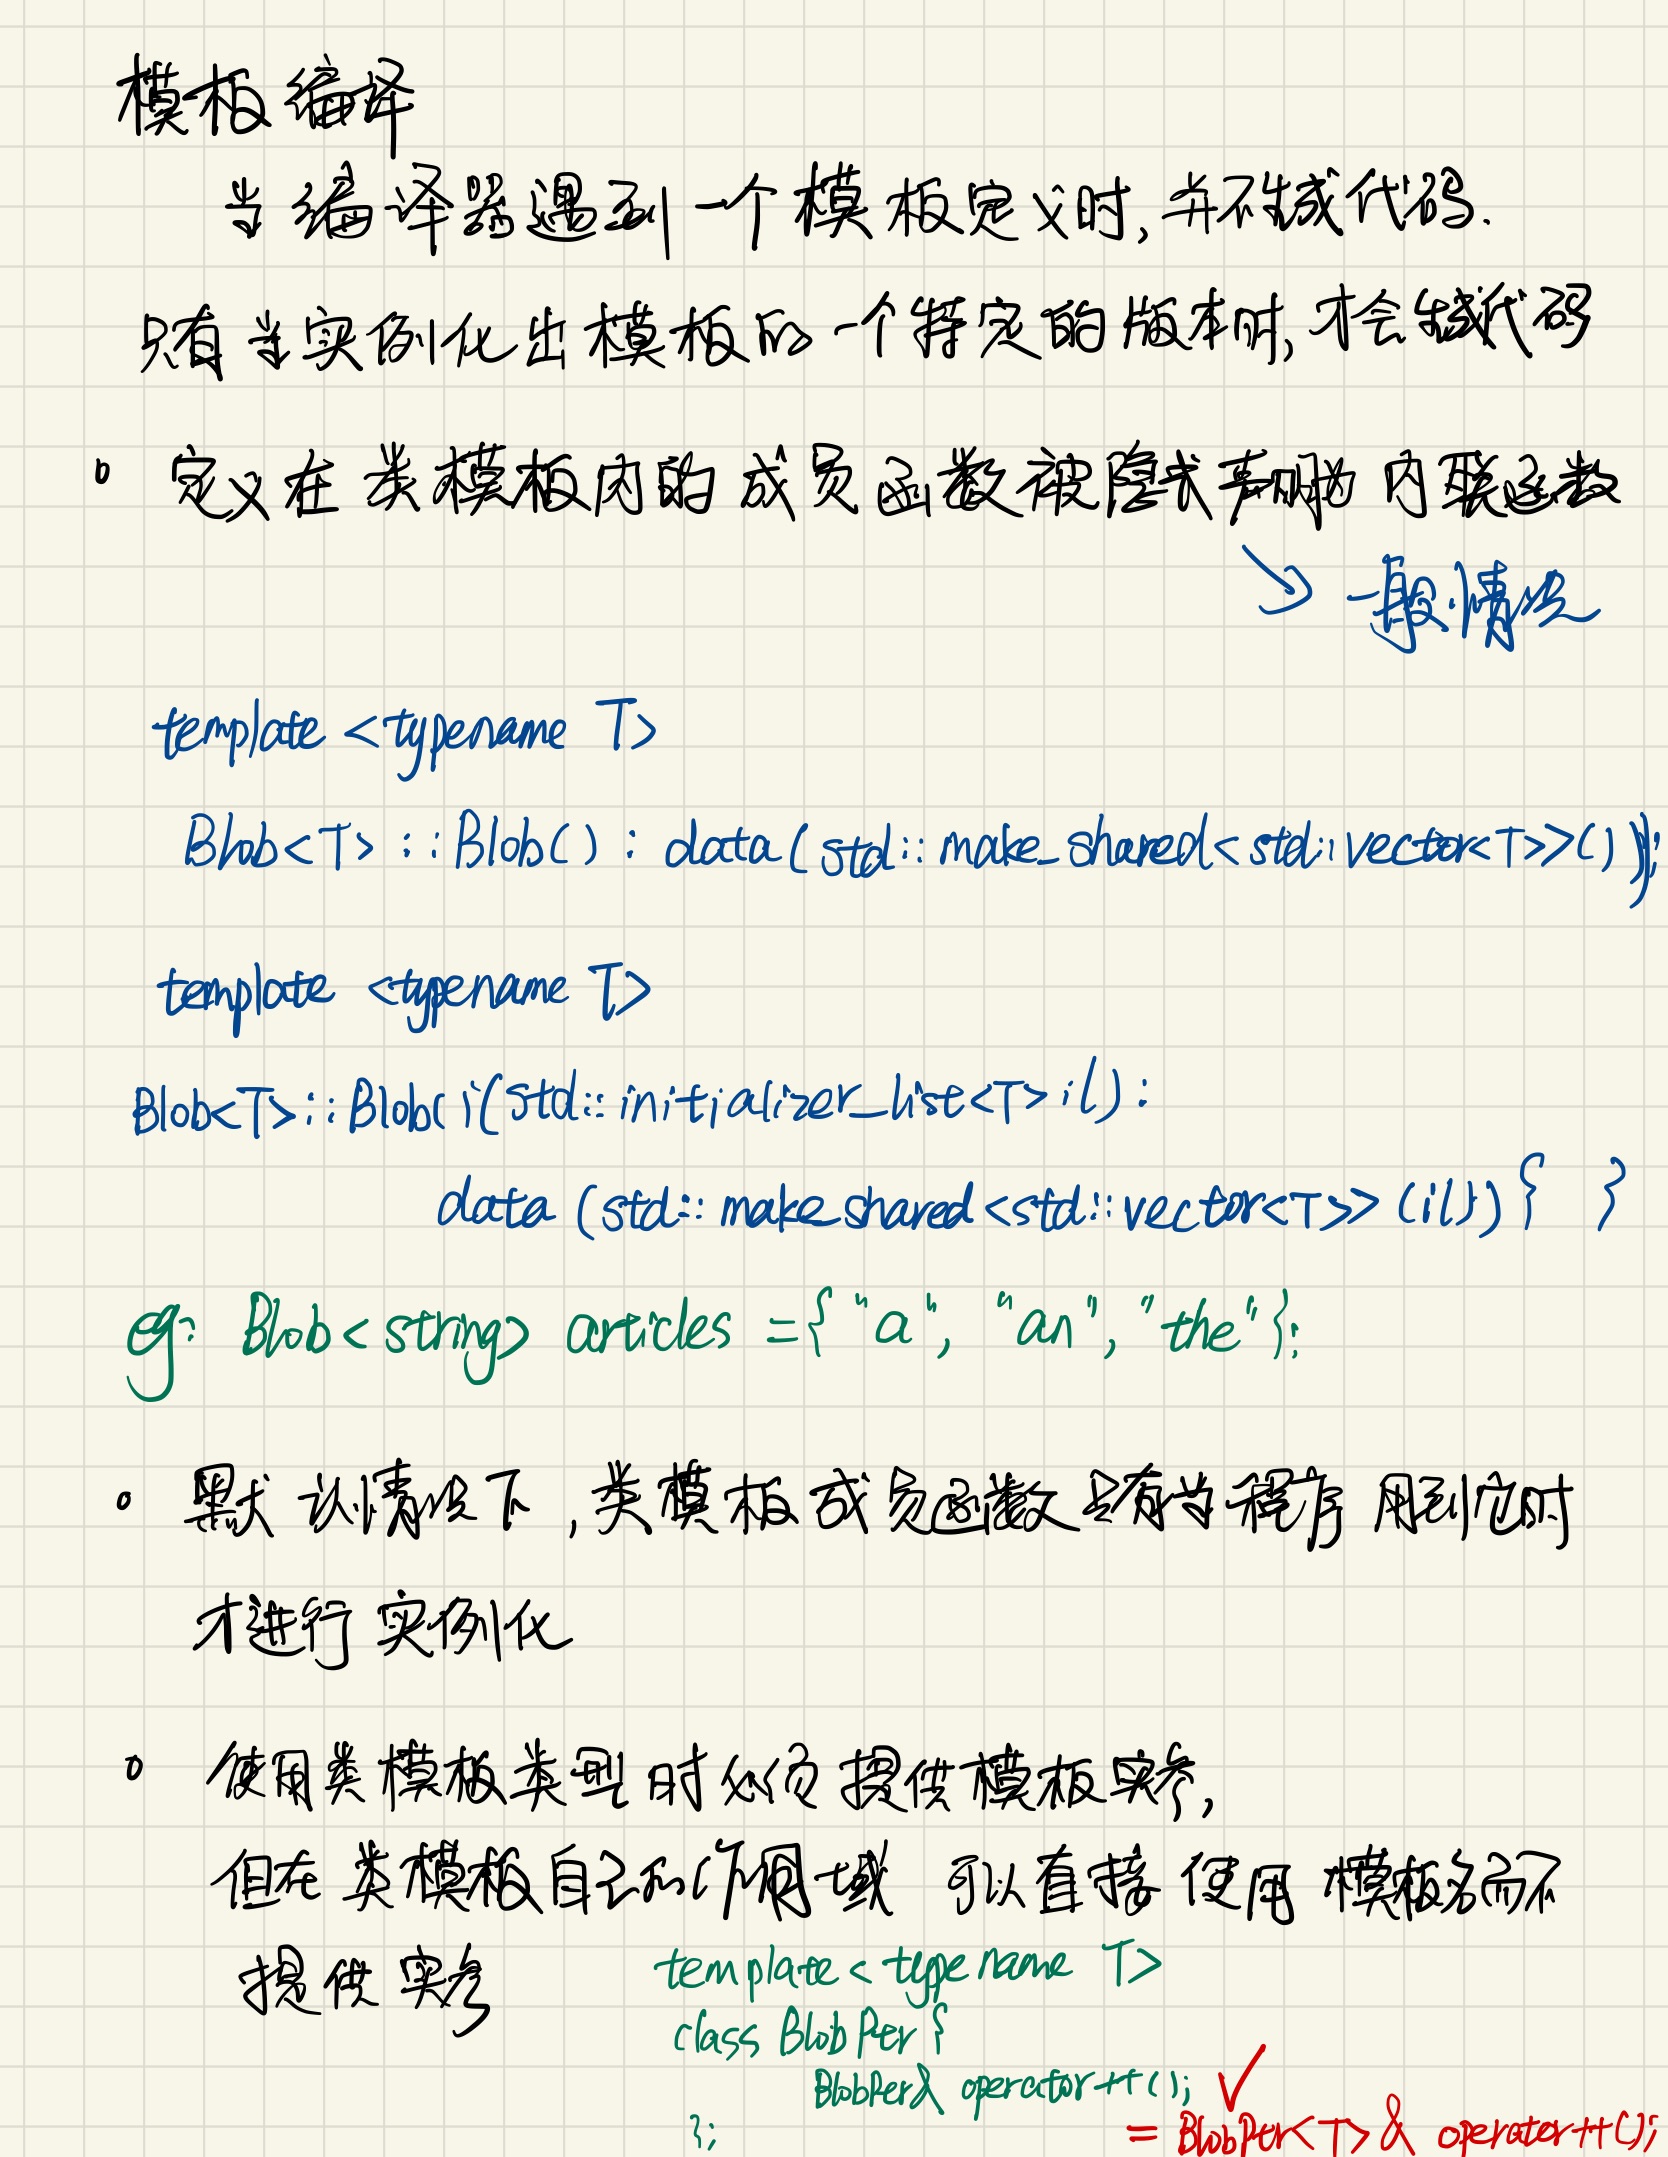 模板编译
当编译器遇到一个模板定义时,并不生成代码.
只有当实例化出模板的一个特定的版本时,才会生成代码
。定义在类模板内的成员函数被隐式声明为内联函数
↘ 一般情况
template <typename T>
Blob<T>::Blob() : data(std::make_shared<std::vector<T>>());
template <typename T>
Blob<T>::Blob( i(std::initializer_list<T> il):
data (std::make_shared<std::vector<T>>(il)) { }
eg: Blob<string> articles ={"a", "an", "the"};
。默认情况下,类模板成员函数只有当程序用到它时
才进行实例化
。使用类模板类型时必须提供模板实参,
但在类模板自己的作用域 可以直接使用模板名而不
提供实参
template<typename T>
class BlobPtr {
BlobPtr& operator++(); ✓
= BlobPtr<T>& operator++();
};